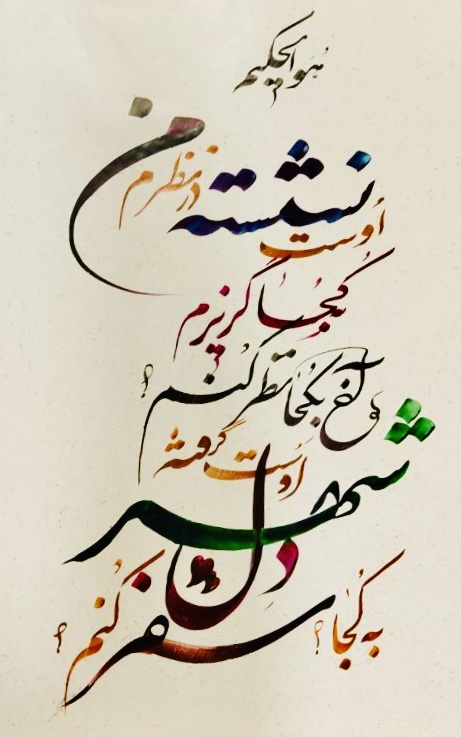 هوالحکیم
اوست نشسته در نظرم من
کجا گریزم
و آخر بکجا نظر کنم؟
اوست گرفته
شهر دل
به کجا؟ سفر کنم؟